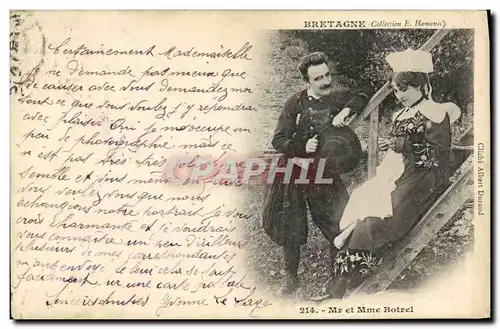 BRETAGNE (Collection E. Hamonic)
Certainement Mademoiselle
Je ne demande pas mieux que
de causer avec vous demandez moi
tout ce que vous voulez j'y répondrai
avec plaisir Oui je m'occupe un
peu de photographie mais ce
n'est pas très
semble et vous même
voulez vous que nous
échangions notre portrait Je vous
crois charmante et je voudrais
vous connaître un peu d'ailleurs
plusieurs de mes correspondantes
m'ont envoyé le leur cela se fait
facilement sur une carte postale
Sincères amitiés Yvonne Le Sage
CPRPHIL
Cliché Albert Durand
214. - Mr et Mme Botrel